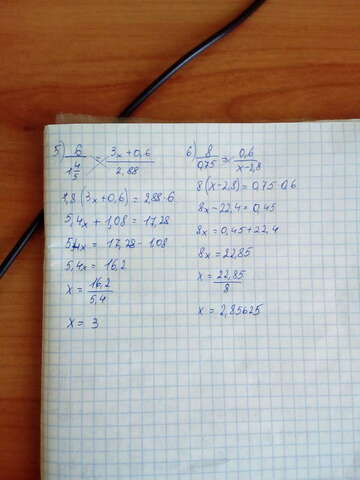 5) 6 / 1 4/5 = 3x + 0,6 / 2,88
1,8 (3x + 0,6) = 2,88 · 6
5,4x + 1,08 = 17,28
5,4x = 17,28 - 1,08
5,4x = 16,2
x = 16,2 / 5,4
x = 3
6) 8 / 0,75 = 0,6 / x - 2,8
8 (x - 2,8) = 0,75 · 0,6
8x - 22,4 = 0,45
8x = 0,45 + 22,4
8x = 22,85
x = 22,85 / 8
x = 2,85625